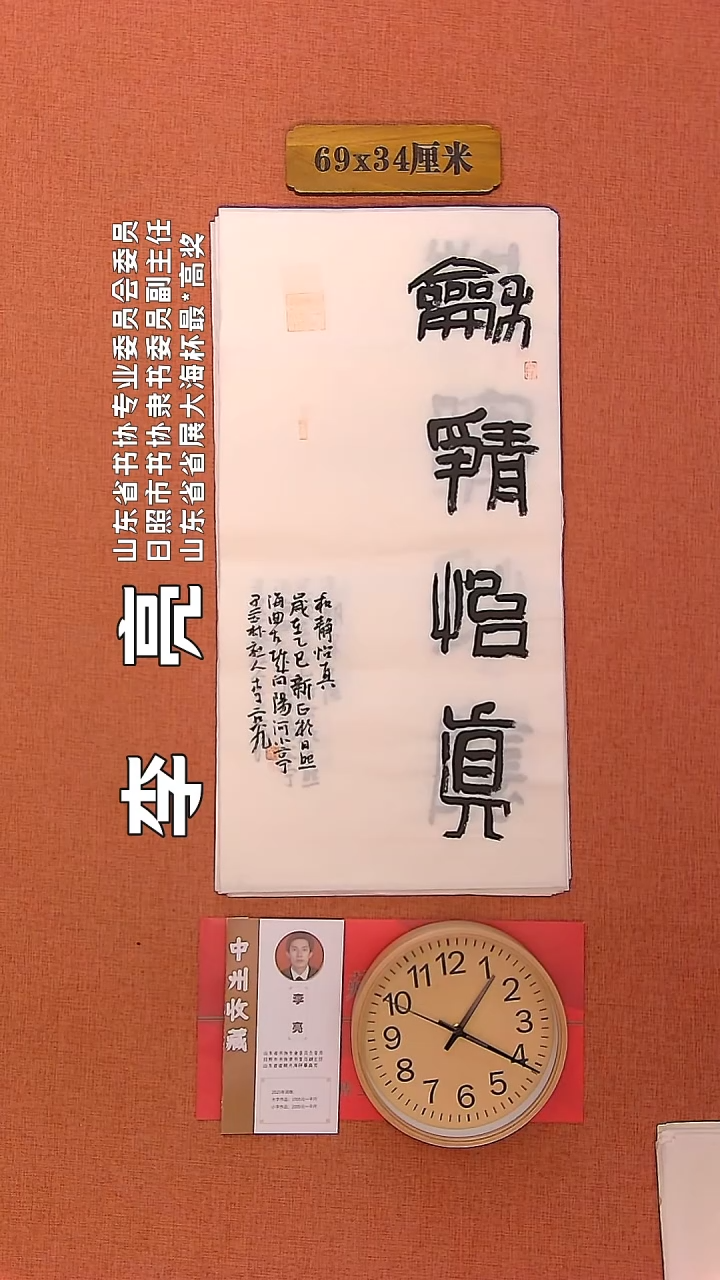 69x34厘米
龢
静
怡
真
和静怡真
歲在乙巳新正於日照
海曲古城向陽河小亭
李亮
山东省书协专业委员会委员
日照市书协隶书委员副主任
山东省省展大海杯最*高奖
李 亮
中
藏
李
亮
12
1
2
3
4
5
6
7
8
9
10
11